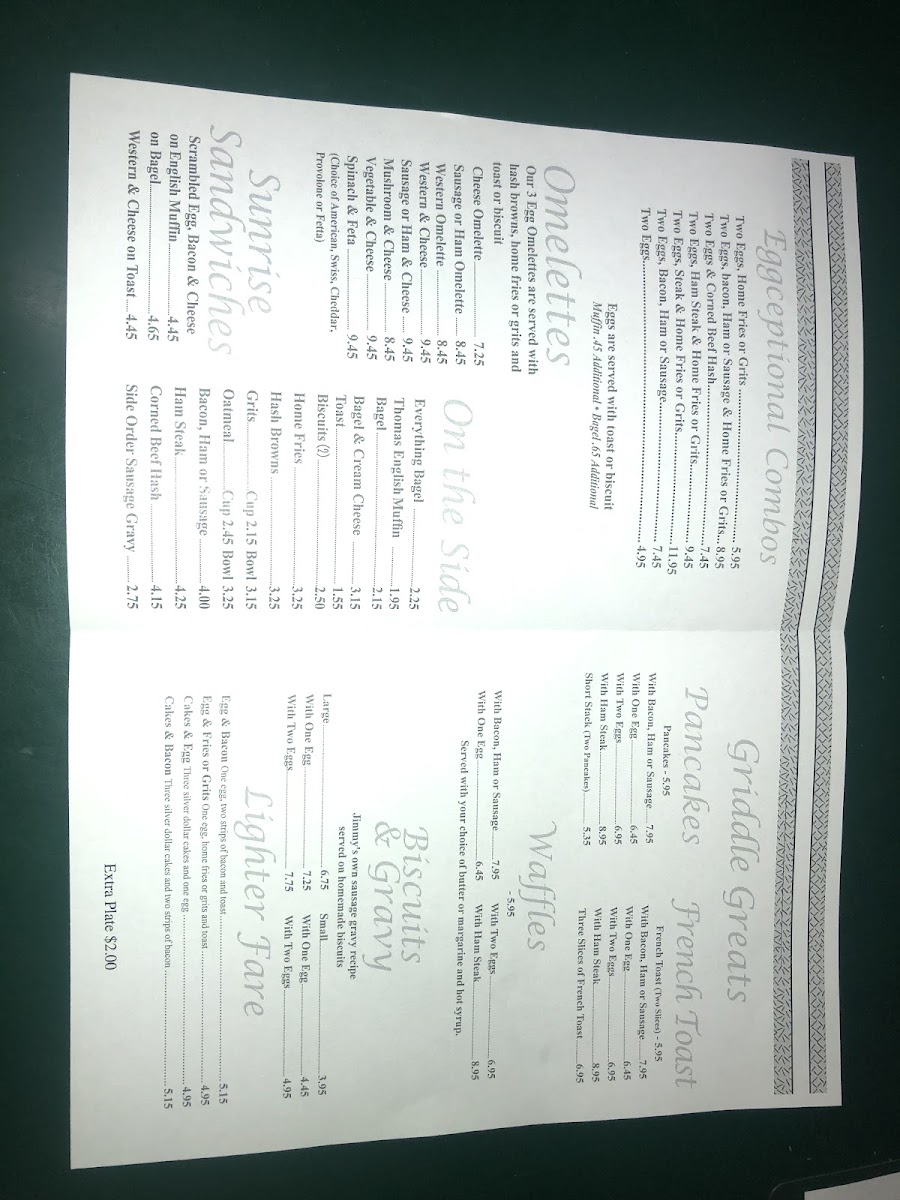 Eggceptional Combos
Two Eggs, Home Fries or Grits ........ 5.95
Two Eggs, bacon, Ham or Sausage & Home Fries or Grits... 8.95
Two Eggs & Corned Beef Hash........ 7.45
Two Eggs, Ham Steak & Home Fries or Grits........ 9.45
Two Eggs, Steak & Home Fries or Grits........ 11.95
Two Eggs, Bacon, Ham or Sausage........ 7.45
Two Eggs........ 4.95
Eggs are served with toast or biscuit
Muffin .45 Additional • Bagel .65 Additional
Omelettes
Our 3 Egg Omelettes are served with
hash browns, home fries or grits and
toast or biscuit
Cheese Omelette ........ 7.25
Sausage or Ham Omelette ..... 8.45
Western Omelette ........ 8.45
Western & Cheese ........ 9.45
Sausage or Ham & Cheese ..... 9.45
Mushroom & Cheese ........ 8.45
Vegetable & Cheese........ 9.45
Spinach & Feta ........ 9.45
(Choice of American, Swiss, Cheddar,
Provolone or Fetta)
Sunrise
Sandwiches
Scrambled Egg, Bacon & Cheese
on English Muffin........ 4.45
on Bagel........ 4.65
Western & Cheese on Toast .... 4.45
On the Side
Everything Bagel ........ 2.25
Thomas English Muffin ........ 1.95
Bagel ........ 2.15
Bagel & Cream Cheese ........ 3.15
Toast........ 1.55
Biscuits (2) ........ 2.50
Home Fries ........ 3.25
Hash Browns ........ 3.25
Grits ........ Cup 2.15 Bowl 3.15
Oatmeal ........ Cup 2.45 Bowl 3.25
Bacon, Ham or Sausage ........ 4.00
Ham Steak........ 4.25
Corned Beef Hash ........ 4.15
Side Order Sausage Gravy ........ 2.75
Griddle Greats
Pancakes
Pancakes - 5.95
With Bacon, Ham or Sausage ..... 7.95
With One Egg ........ 6.45
With Two Eggs ........ 6.95
With Ham Steak ........ 8.95
Short Stack (Two Pancakes) ........ 5.35
French Toast
French Toast (Two Slices) - 5.95
With Bacon, Ham or Sausage ..... 7.95
With One Egg ........ 6.45
With Two Eggs ........ 6.95
With Ham Steak ........ 8.95
Three Slices of French Toast ..... 6.95
Waffles
- 5.95
With Bacon, Ham or Sausage........ 7.95
With One Egg ........ 6.45
With Two Eggs ........ 6.95
With Ham Steak ........ 8.95
Served with your choice of butter or margarine and hot syrup.
Biscuits
& Gravy
Jimmy's own sausage gravy recipe
served on homemade biscuits
Large........ 6.75
With One Egg ........ 7.25
With Two Eggs ........ 7.75
Small........ 3.95
With One Egg........ 4.45
With Two Eggs ........ 4.95
Lighter Fare
Egg & Bacon One egg, two strips of bacon and toast........ 5.15
Egg & Fries or Grits One egg, home fries or grits and toast........ 4.95
Cakes & Egg Three silver dollar cakes and one egg ........ 4.95
Cakes & Bacon Three silver dollar cakes and two strips of bacon........ 5.15
Extra Plate $2.00